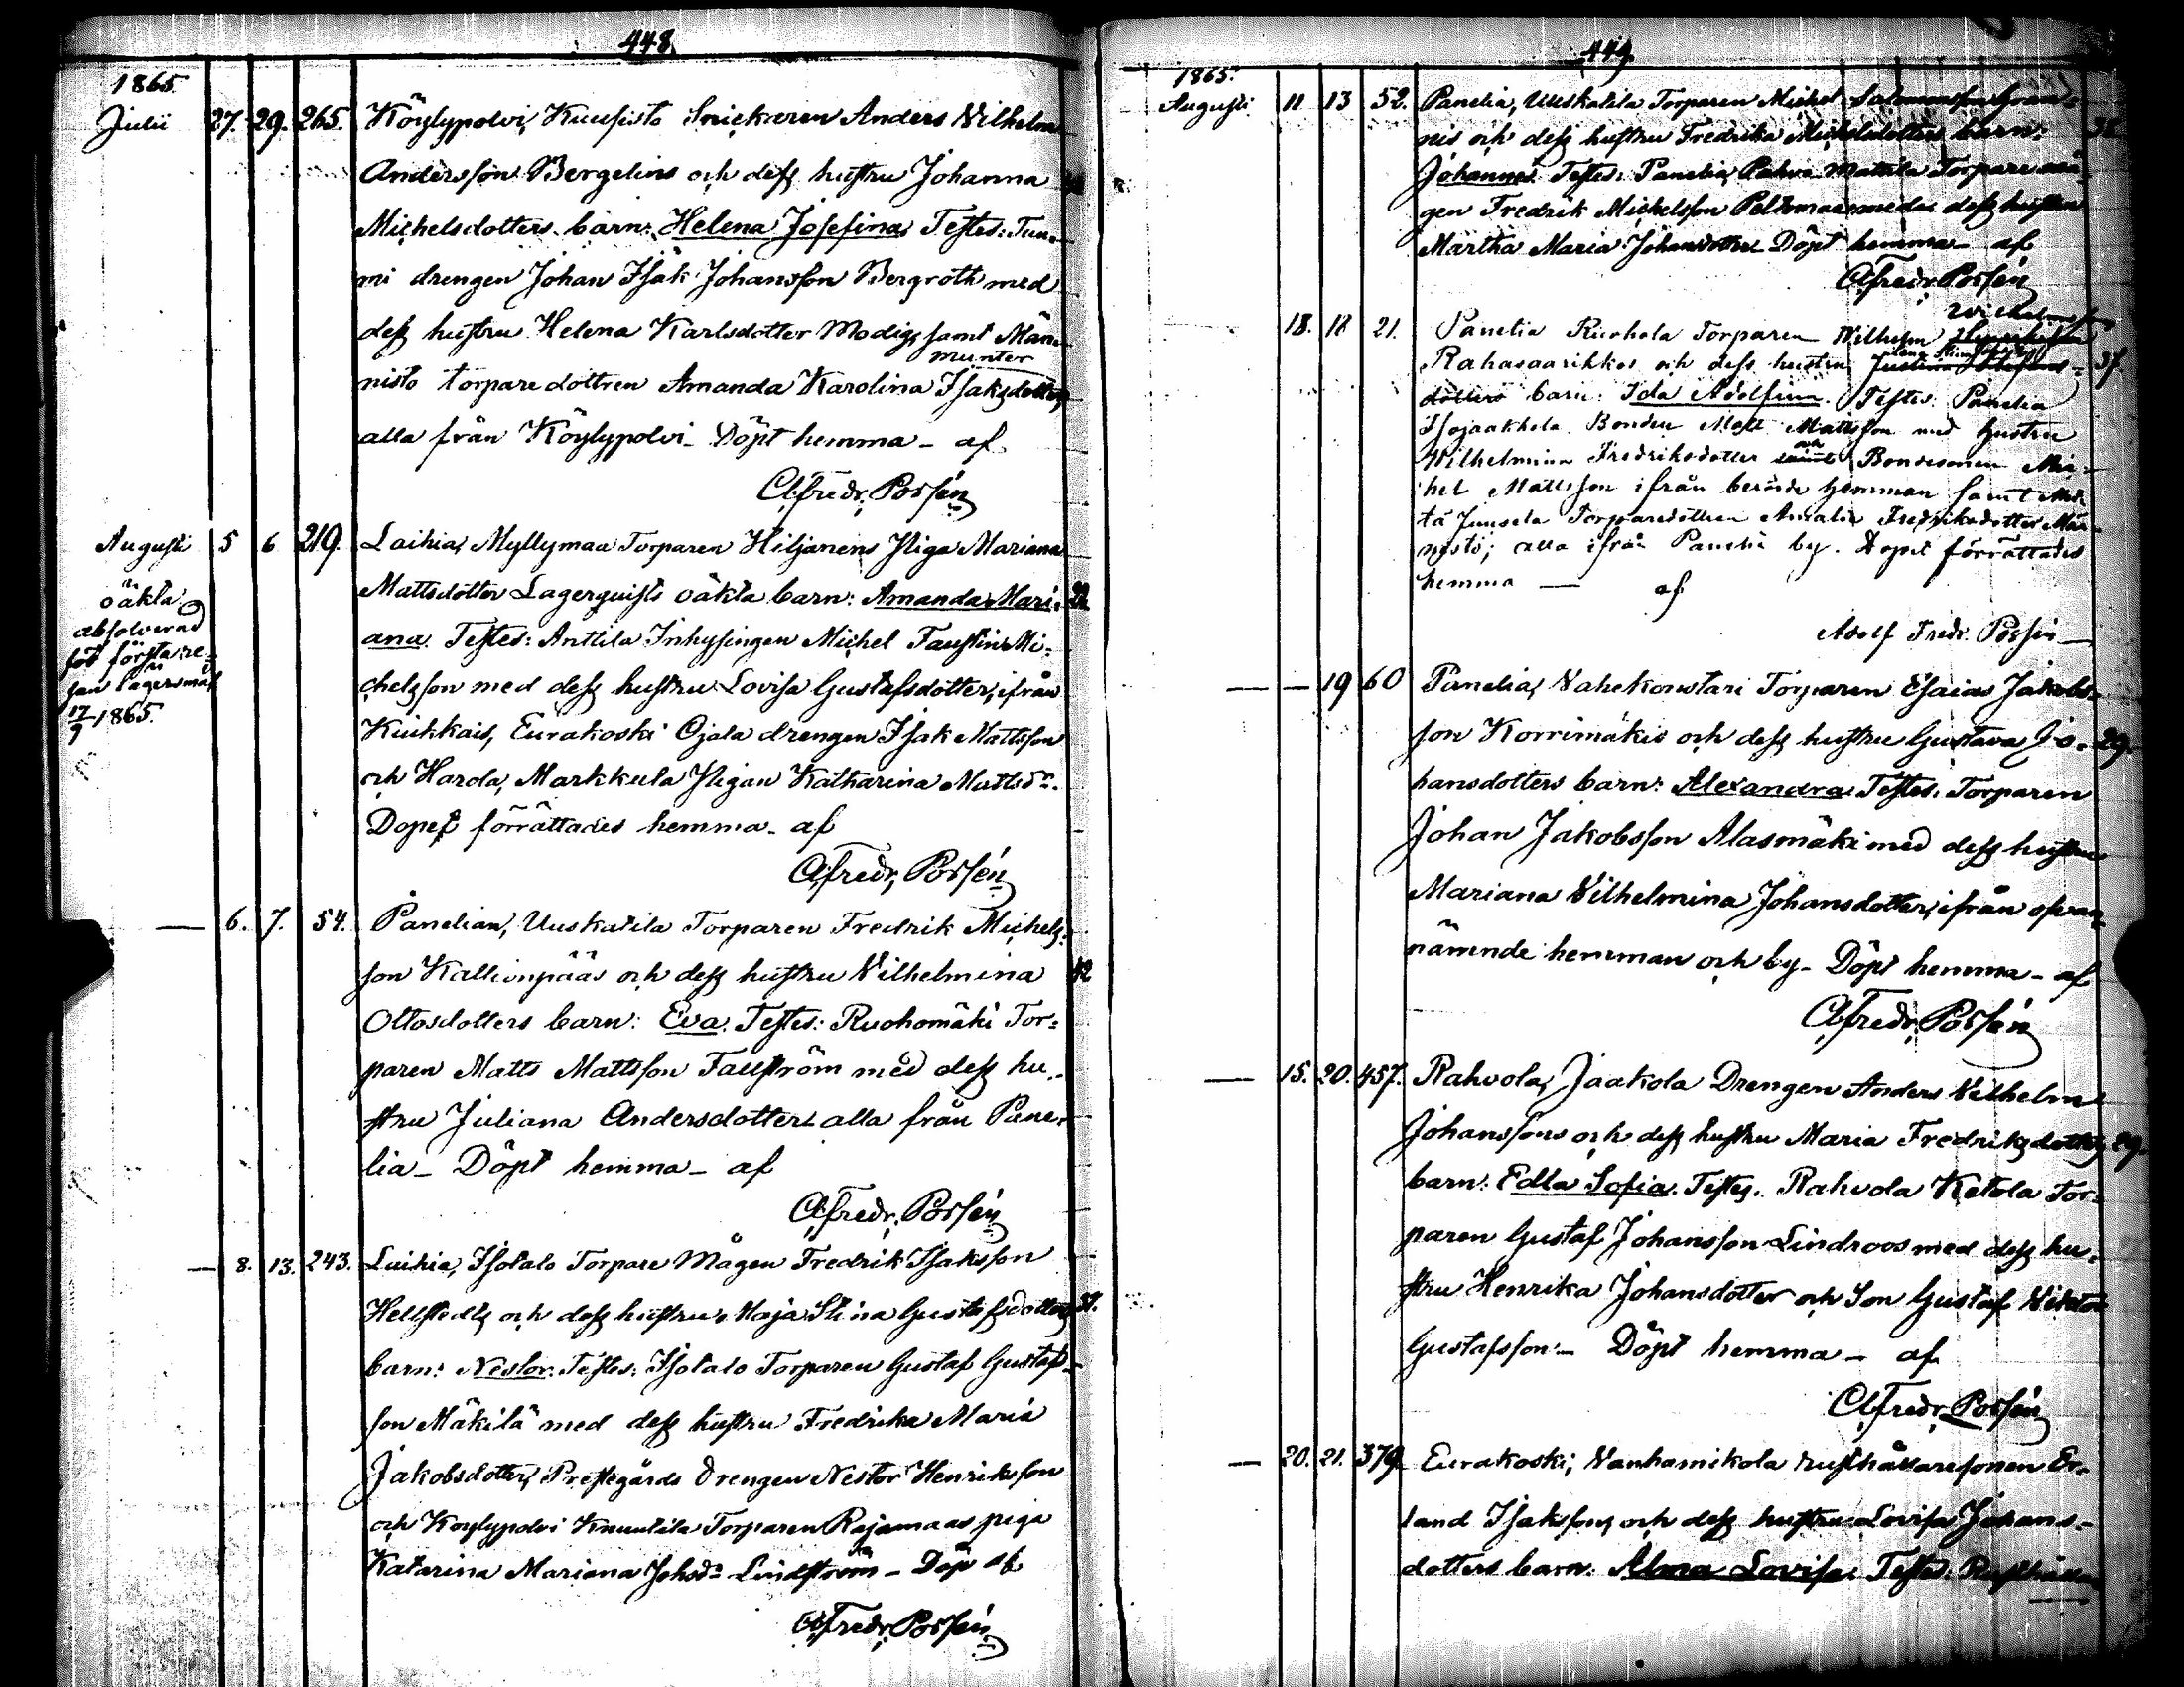 448.
1865.
Julii 27. 29. 265. Köylypolvi, Kuusisto Snickaren Anders Wilhelm
Andersson Bergelins och dess hustru Johanna
Michelsdotters barn: Helena Josefina. Testes: Tum-
mi drengen Johan Isak Johansson Bergroth med
dess hustru Helena Karlsdotter Modig, samt Män-
munter
nisto torparedottren Amanda Karolina Isaksdotter,
alla från Köylypolvi. Döpt hemma - af
A. Fredr. Porsén
Augusti 5 6 219. Laihia, Myllymaa Torparen Hiljanens Piga Mariana
oäkta
absolverad
för första re-
san lägersmål
17/9 1865.
Mattsdotter Lagerquists oäkta barn: Amanda Mari- 22
ana. Testes: Anttila Inhysingen Michel Faustin Mi-
chelsson med dess hustru Lovisa Gustafsdotter, ifrån
Kiukkais, Eurakoski Ojala drengen Isak Mattsson
och Harola, Markkula Pigan Katharina Mattsdr.
Dopet förrättades hemma - af
A. Fredr. Porsén
— 6. 7. 54. Panelian, Uuskatila Torparen Fredrik Michels-
son Kallionpääs och dess hustru Vilhelmina 42
Ottosdotters barn: Eva. Testes: Ruohomäki Tor-
paren Matts Mattsson Fallström med dess hu-
stru Juliana Andersdotter alla från Pane-
lia - Döpt hemma - af
A. Fredr. Porsén
— 8. 13. 243. Laihia, Isotalo Torpare Mågen Fredrik Isaksson
Hellstedts och dess hustru Maja Stina Gustafsdotters
barn: Nestor. Testes: Isotalo Torparen Gustaf Gustafs-
son Mäkilä med dess hustru Fredrika Maria
Jakobsdotter, Prestegårds drengen Nestor Henriksson
och Köylypolvi Knuutila Torparen Rajamaas piga
Katarina Mariana Johsdr Lindström - Döp af
A. Fredr. Porsén
449.
1865.
Augusti 11 13 52. Panelia, Uuskatila Torparen Michel Salomonsson Grän-
nis och dess hustru Fredrika Michelsdotters barn: 38
Johannes. Testes: Panelia, Rahva Mattila Torpare må-
gen Fredrik Michelsson Peltomaa med dess hustru
Martha Maria Johansdotter Döpt hemma - af
A. Fredr. Porsén
Wilhelmsson
18. 18 21. Panelia Ruohola Torparen Wilhelm
Rahasaarikkos och dess hustru 37
dotters barn: Ida Adolfina. Testes: Panelia
Isojaakkola Bonden Matts Mattsson med hustru
och
Wilhelmina Fredriksdotter samt Bondesonen Mic-
hel Mattsson ifrån berörde hemman samt
Juusela Torparedottren Amalia Fredriksdotter Män-
nistö; alla ifrån Panelia by. Dopet förrättades
hemma — af
Adolf Fredr. Porsén
— — 19 60 Panelia, Vahekonstari Torparen Esaias Jakobs-
son Korrimäkis och dess hustru Gustava Jo- 29.
hansdotters barn: Alexandra. Testes. Torparen
Johan Jakobsson Alasmäki med dess hustru
Mariana Vilhelmina Johansdotter, ifrån ofvan-
nämnde hemman och by - Döpt hemma - af
A. Fredr. Porsén
— 15. 20. 457. Rahvola, Jaakola Drengen Anders Vilhelm
Johanssons och dess hustru Maria Fredriksdotters 29.
barn: Edla Sofia. Testes. Rahvola Ketola Tor-
paren Gustaf Johansson Lindroos med dess hu-
stru Henrika Johansdotter och Son Gustaf Viktor
Gustafsson - Döpt hemma - af
A. Fredr. Porsén
— 20. 21. 379. Eurakoski, Vanhamikola rusthållaresonen Er-
land Isaksons och dess hustru Lovisa Johans-
dotters barn: Alma Lovisa. Testes: Rusthållar